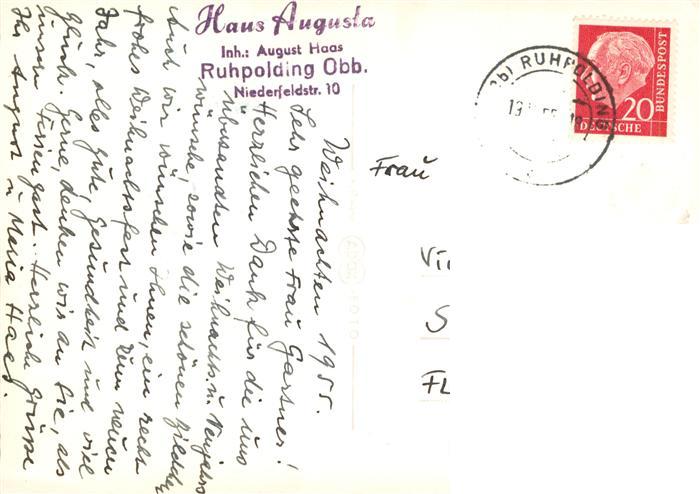 Haus Augusta
Inh.: August Haas
Ruhpolding Obb.
Niederfeldstr. 10
Weihnachten 1955.
Sehr geehrte Frau Gartner!
Herzlichen Dank für die uns
übersandten Weihnachts. u. Neujahrs
wünsche, sowie die schönen Bilder.
Auch wir wünschen Ihnen, ein recht
frohes Weihnachtsfest und zum neuen
Jahr, alles gute, Gesundheit und viel
Glück. Gerne, denken wir an Sie, als
unsern Feriengast. Herzliche Grüsse
Ihr August u Maria Haas.
Frau
Vi
S
FL
RUHPOLDING
20
DEUTSCHE
BUNDESPOST
FOTO